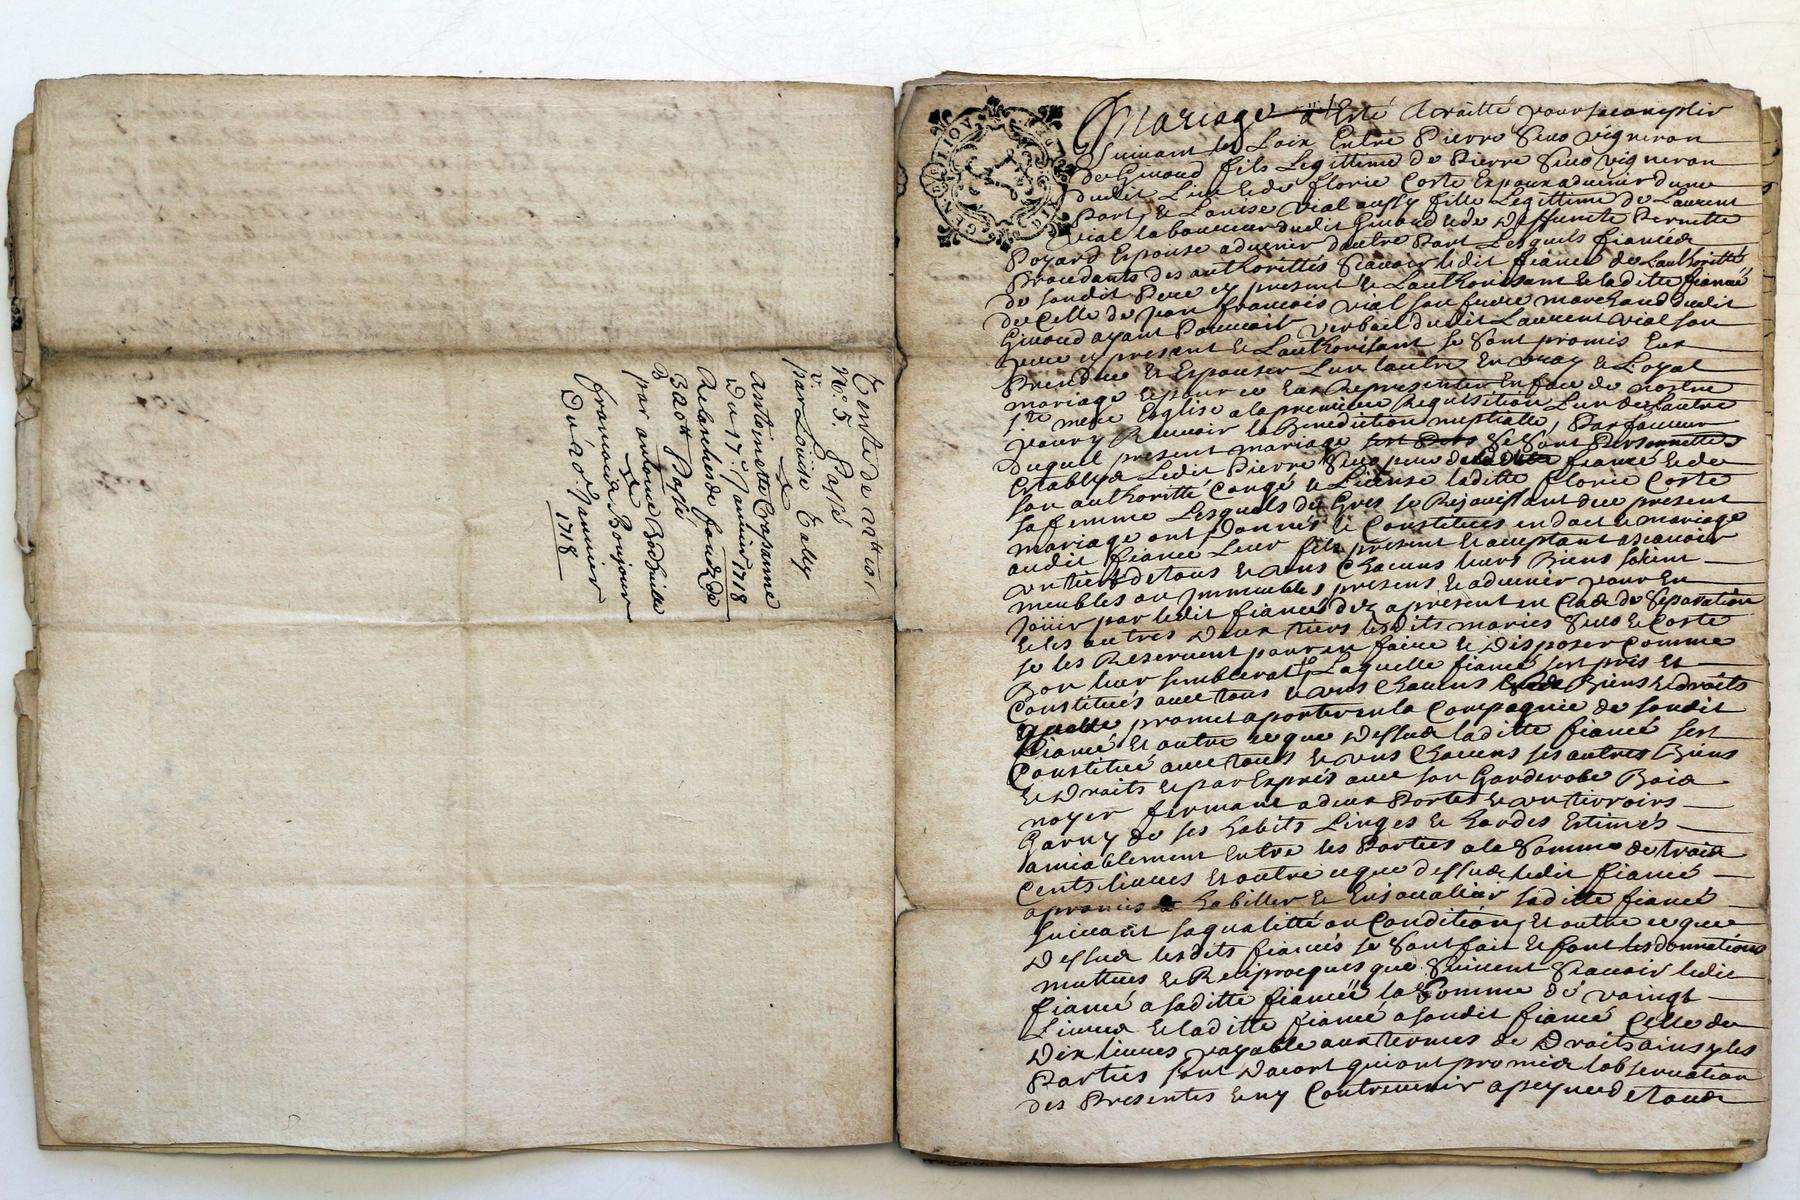 Vente de
N° 5. Passé
par Louise Taby
&
antoinette Crapanne
Du 17e. Janvier 1718
Relaschesde fondz de
320tt Passé
par antoine
&
francoois Boujour
Du 20e. Janvier
1718
GEN DE LION
Mariage a Esté Traitté pour saccomplir
Suivant les Loix Entre Pierre Seno vigneron
de Givord fils Legittime de Pierre Seno vigneron
dudit Lieu & de florie Coste Espoux advenir dune
Part, & Louise Vial aussy fille Legittime de Laurent
Vial laboureur dudit Givord & de Deffuncte Pernette
Poyard Espouse advenir dautre Part Lesquels fiancés
Procedants des authorittés Scavoir ledit fiancé de Lauthoritté
de sondit Pere cy present & Lauthorisant & laditte fiancé
de Celle de jean francois Vial son frere marchand dudit
Givord ayant Pouvoir verbail dudit Laurent Vial son
pere cy present & Lauthorisant se sont promis Eux
Prendre & Espouser Lun lautre En vray & Loyal
mariage & pour ce Eux Representer En face de nostre
Ste mere Esglise a la premiere Requisition Lun de Lautre
pour y Recevoir la Benediction nuptialle, Par faveur
duquel present mariage se sont Personnelles
Establys Ledit Pierre Seno pere fiancé & de
son authoritté Congé & License laditte florie Coste
sa femme Lesquels de Gres se Rejouissant du present
mariage ont Donnés & Constitués en dot & mariage
audit fiancé Leur fils present & acceptant ascavoir
un tiers de tous & uns Chacuns leurs Biens soient
meubles ou jmmeubles presens & advenir pour En
Joüir par ledit fiancé dez apresent en Cas de Separation
& les autres Deux tiers lesdits mariés Seno & Coste
se les Reservent pour en faire & Disposer Comme
Bon leur semblerat, Laquelle fiancé sest pris et
Constitués avec tous & uns Chacuns Biens & droits
promet aporter en la Compagnie de sondit
fiancé Et outre ce que Dessus laditte fiancé sest
Constitué avec tous & uns Chacuns ses autres Biens
& Droits & par Exprés avec son Garderobe Bois
noyer fermant a deux Portes & un tirroirs
Garny de ses habits Linges & hardes Estimés
amiablement Entre les Parties a la Somme de trois
Cents livres Et outre ce que dessus ledit fiancé
apromis habiller & Enjoualier saditte fiancé
suivant sa qualitté ou Condition, Et outre ce que
Dessus lesdits fiancés se sont fait & font les donnations
mutues & Reciprocques que Suivent Scavoir ledit
fiancé a saditte fiancéé la Somme de vaingt
Livres & laditte fiancé a sondit fiancé Celle de
Dix livres payable aux termes de Droits ainsy les
Parties sont Dacort qui ont promis lobservation
des Presentes & ny Contrevenir a peyne de tous